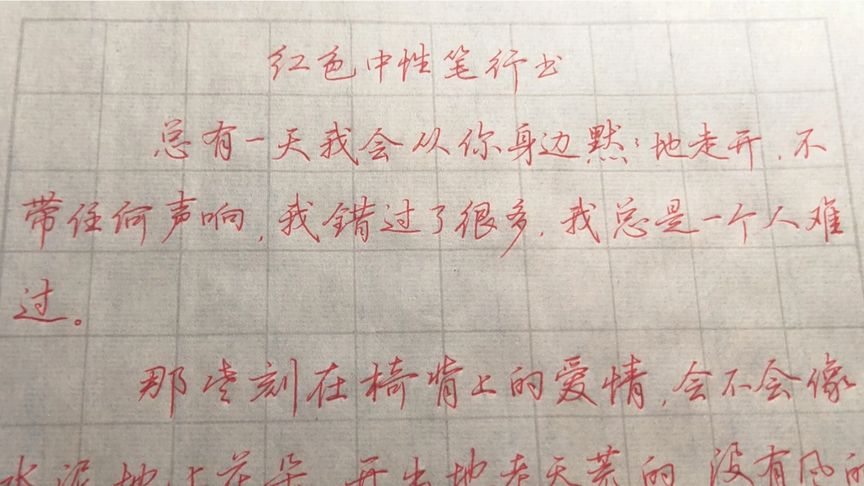 红色中性笔行书
总有一天我会从你身边默:地走开,不
带任何声响,我错过了很多,我总是一个人难
过。
那些刻在椅背上的爱情,会不会像
水泥地上花朵 开出地老天荒的 没有风的